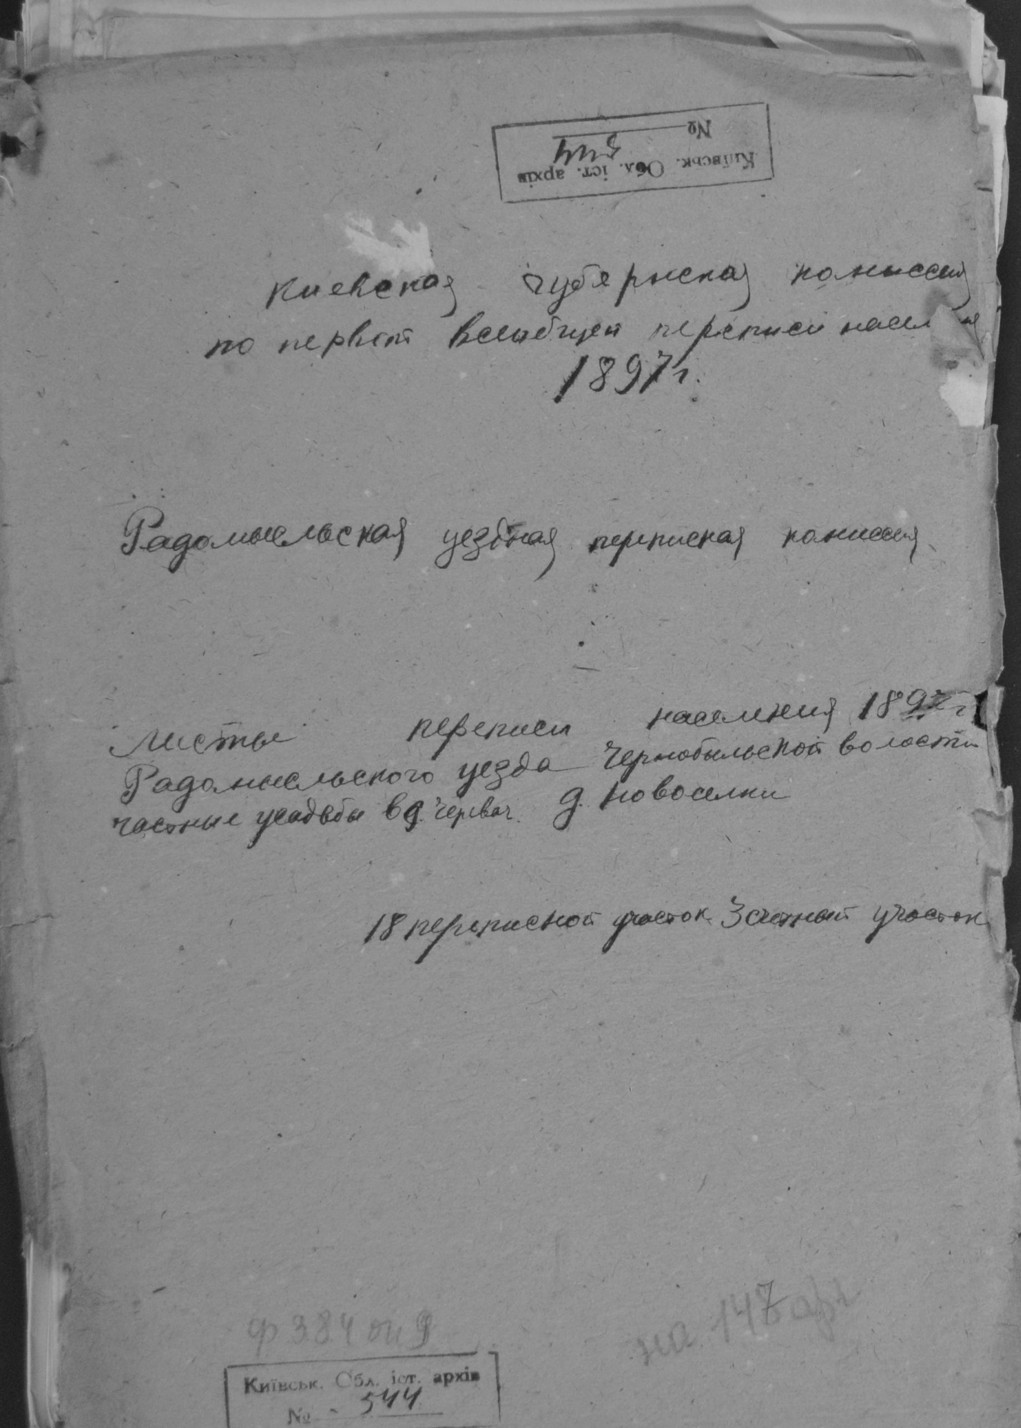 № 544
Київськ. Обл. іст. архів
Киевская губернская комиссия
по первой всеобщей переписи насел
1897 г.
Радомысльская уездная переписная комиссия
Листы переписи населения 1897 г
Радомысльского уезда Чернобыльской волости
частные усадьбы в д. Черевач. д. Новоселки
18 переписной участок 3 счетный участок
ф 384 оп 9
на 147 арк
Київськ. Обл. іст. архів
№ 544